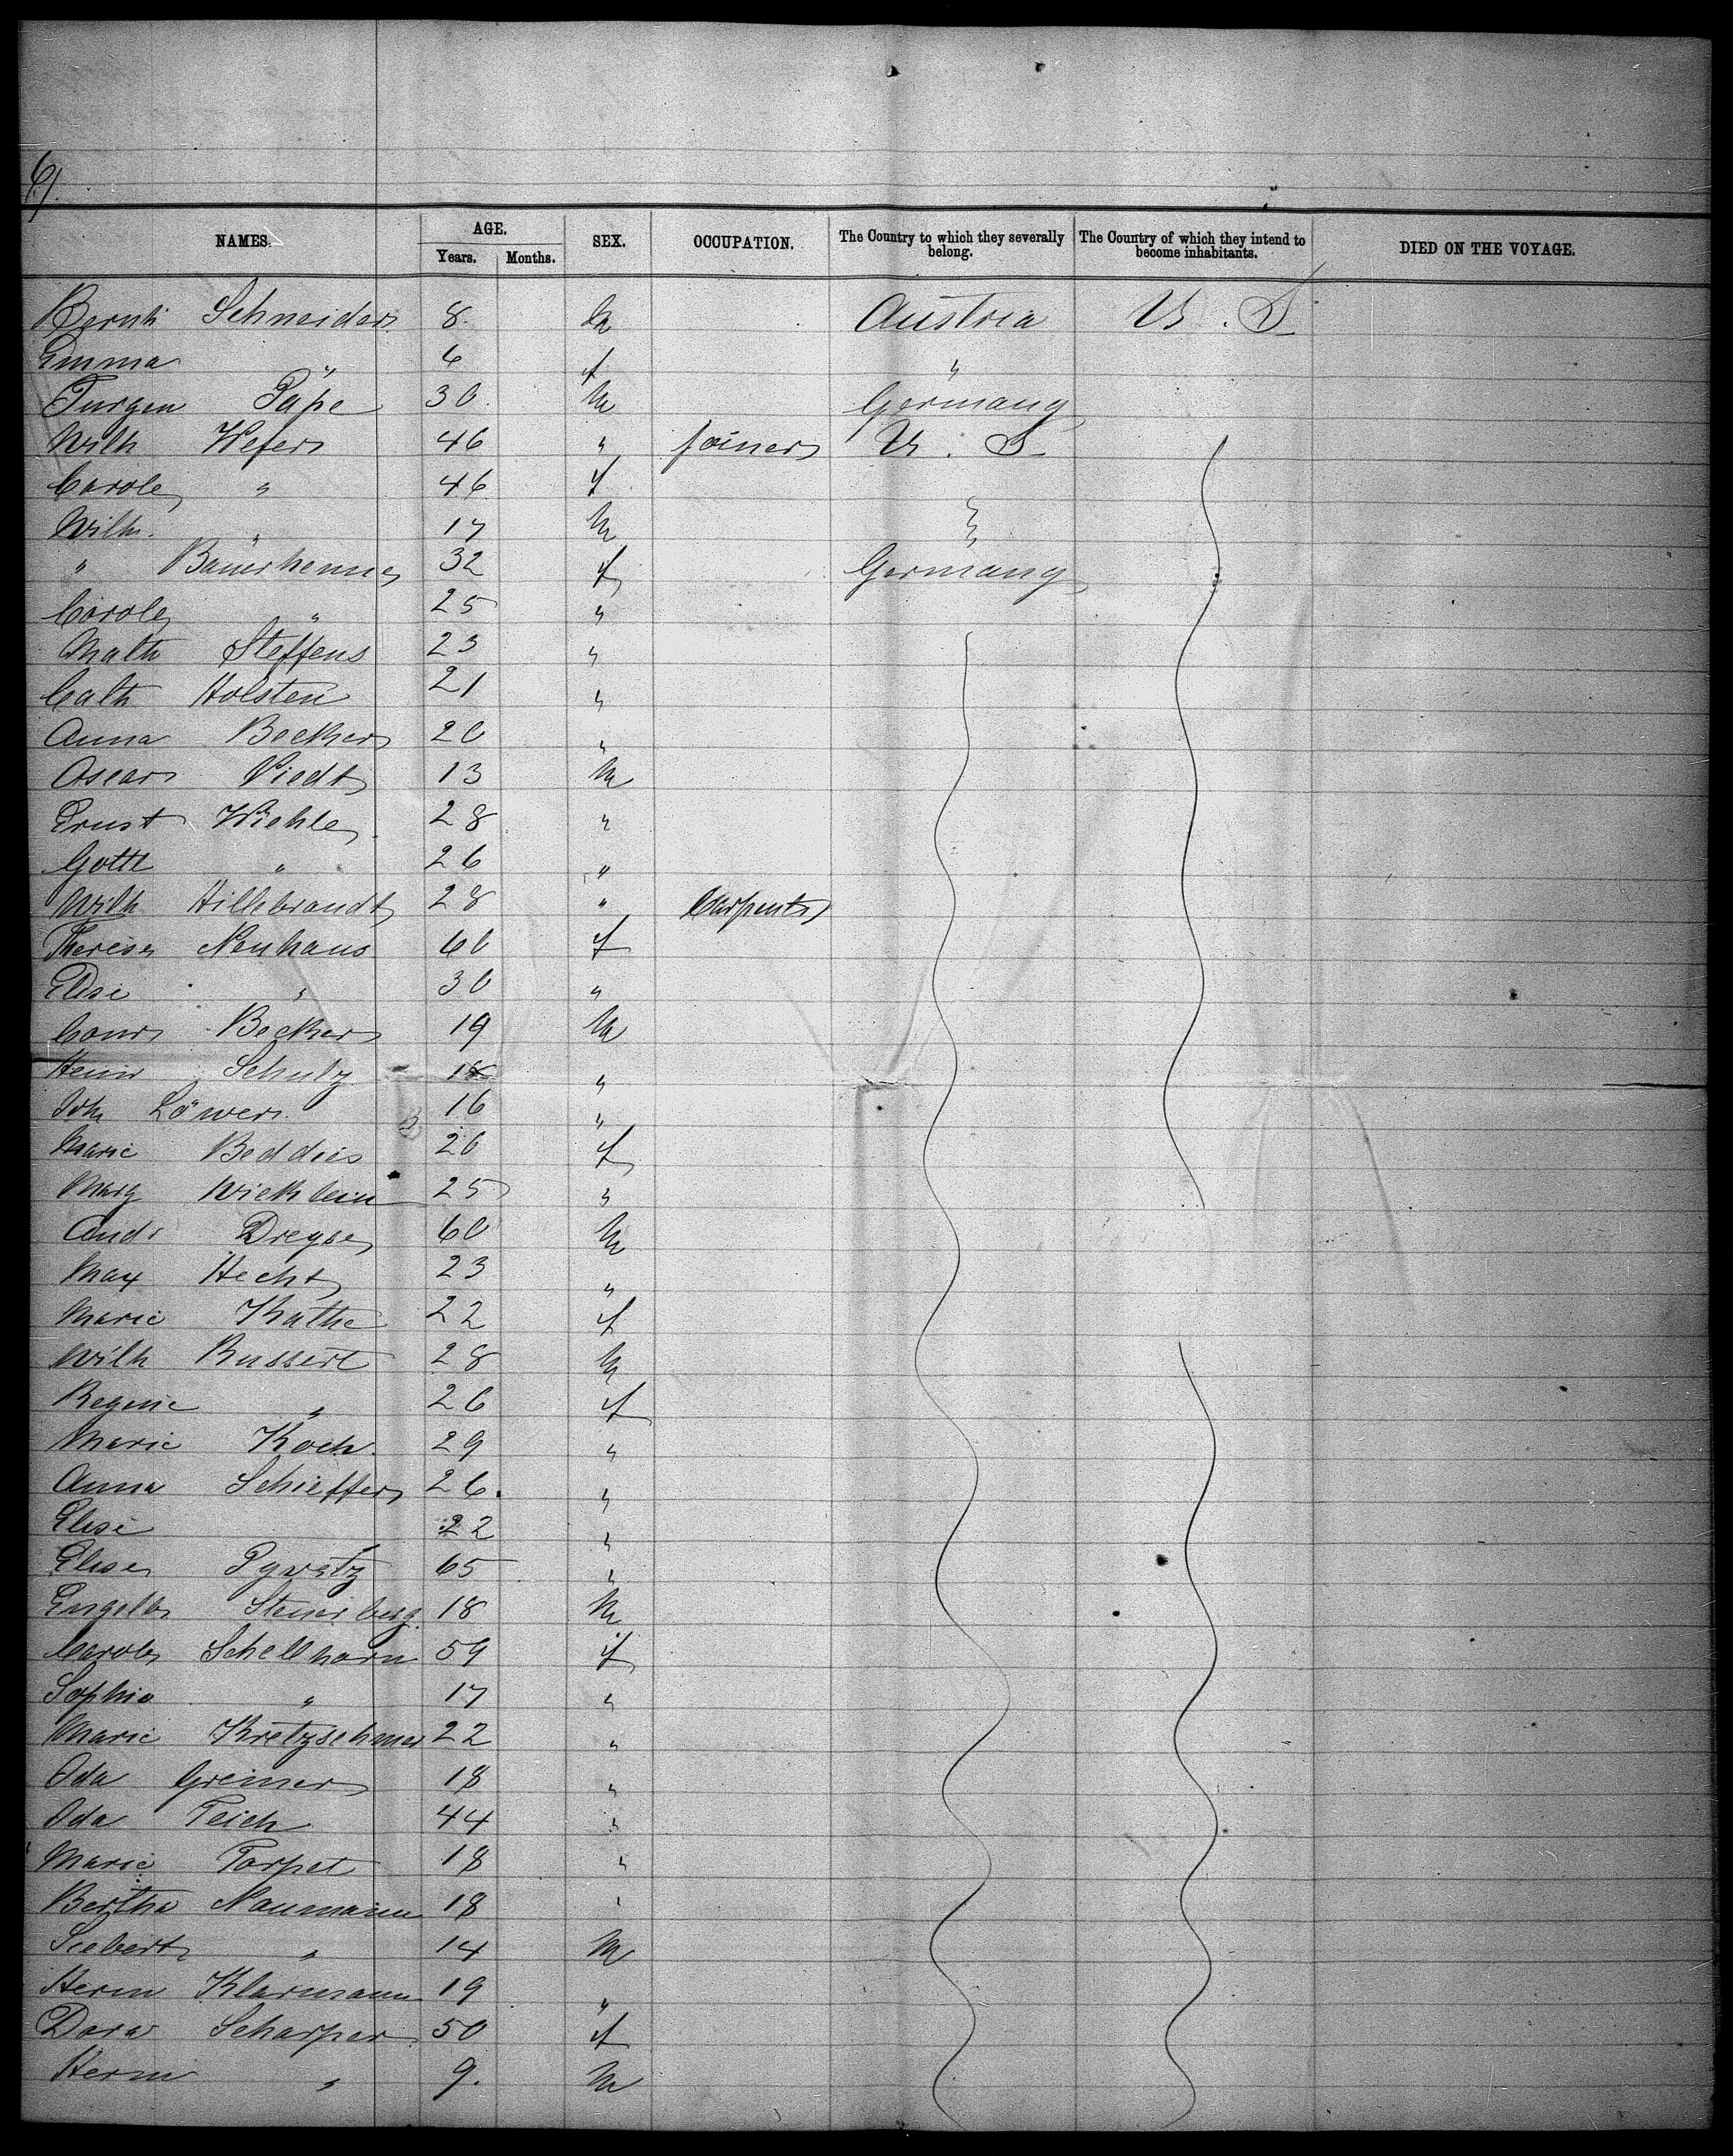 6).
NAMES. AGE. Years. Months. SEX. OCCUPATION. The Country to which they severally belong. The Country of which they intend to become inhabitants. DIED ON THE VOYAGE.
Bernh Schneider 8 M Austria U. S
Emma " 6 f "
Jurgen Pape 30 M Germany
Wilh Wefer 46 " joiner U. S
Carole " 46 f
Wilh. " 17 M
" Bauerhenne 32 f Germany
Carole " 25 "
Math Steffens 23 "
Cath Holsten 21 "
Anna Becker 20 "
Oscar Viedt 13 M
Ernst Wiehle 28 "
Gottl " 26 "
Wilh Hillebrandt 28 " Carpenter
Therese Neuhaus 60 f
Elise " 30 "
Conr Becker 19 M
Heinr Schulz 18 "
Joh Löwer 16 "
Marie Beddies 20 f
Marg Wicklein 25 "
Andr Dreyse 60 M
Max Hecht 23 "
Marie Kathe 22 f
Wilh Bussert 28 M
Regine " 26 f
Marie Koch 29 "
Anna Schieffer 26. "
Elise 22 "
Elise 65 "
Engelb Steinberg 18 M
Carole Schellhorn 59 f
Sophie " 17 "
Marie Kretzschmer 22 "
Ida Greiner 18 "
Ida Teich 44 "
Marie Torpet 18 "
Bertha Naumann 18 "
Siebert " 14 M
Herm Klarmann 19 "
Dora Scharper 50 f
Herm " 9. M